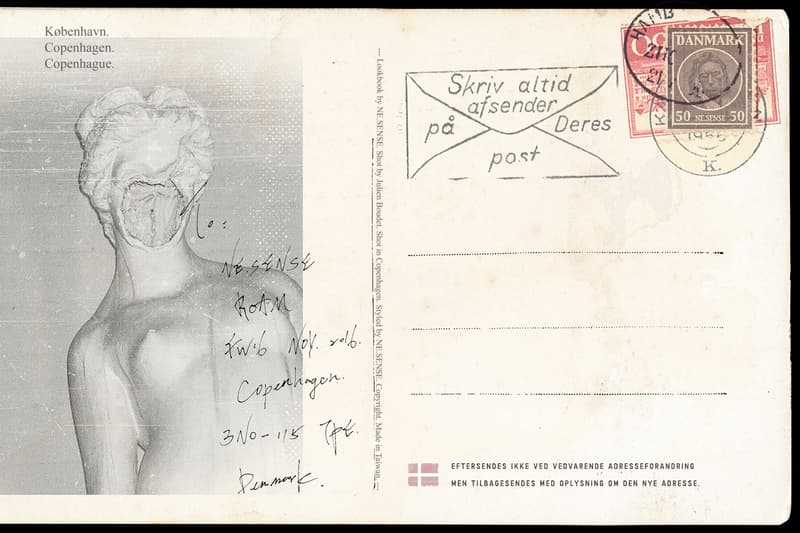 København.
Copenhagen.
Copenhague.
To:
NE.SENSE
ROAM
FW16 Nov. 2016.
Copenhagen.
3NO-115 TPE.
Denmark.
— Lookbook by NE.SENSE. Shot by Julien Boudet. Shot in Copenhagen. Styled by NE.SENSE. Copyright. Made in Taiwan. —
Skriv altid
afsender
på Deres
post
HAMB
DANMARK
50 NE.SENSE 50
K.
EFTERSENDES IKKE VED VEDVARENDE ADRESSEFORANDRING
MEN TILBAGESENDES MED OPLYSNING OM DEN NYE ADRESSE.